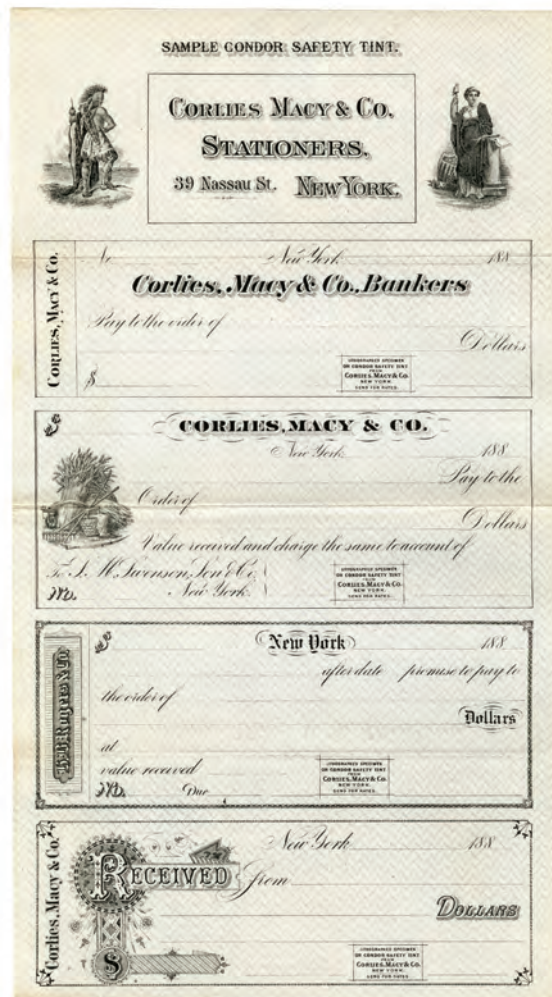 SAMPLE CONDOR SAFETY TINT.
CORLIES MACY & CO.
STATIONERS,
39 Nassau St. NEW YORK.
CORLIES, MACY & CO.
No New York 188
Corlies, Macy & Co., Bankers
Pay to the order of
Dollars
$
LITHOGRAPHED SPECIMEN
ON CONDOR SAFETY TINT
FROM
CORLIES, MACY & CO.
NEW YORK.
SEND FOR RATES.
$
CORLIES, MACY & CO.
New York 188
Pay to the
Order of
Dollars
Value received and charge the same to account of
To S. M. Swenson, Son & Co.
No. New York.
LITHOGRAPHED SPECIMEN
ON CONDOR SAFETY TINT
FROM
CORLIES, MACY & CO.
NEW YORK.
SEND FOR RATES.
Rogers & Co.
$ New York 188
after date promise to pay to
the order of
Dollars
at
value received
No. Due
LITHOGRAPHED SPECIMEN
ON CONDOR SAFETY TINT
FROM
CORLIES, MACY & CO.
NEW YORK.
SEND FOR RATES.
Corlies, Macy & Co.
New York 188
RECEIVED from
DOLLARS
$
LITHOGRAPHED SPECIMEN
ON CONDOR SAFETY TINT
FROM
CORLIES, MACY & CO.
NEW YORK.
SEND FOR RATES.